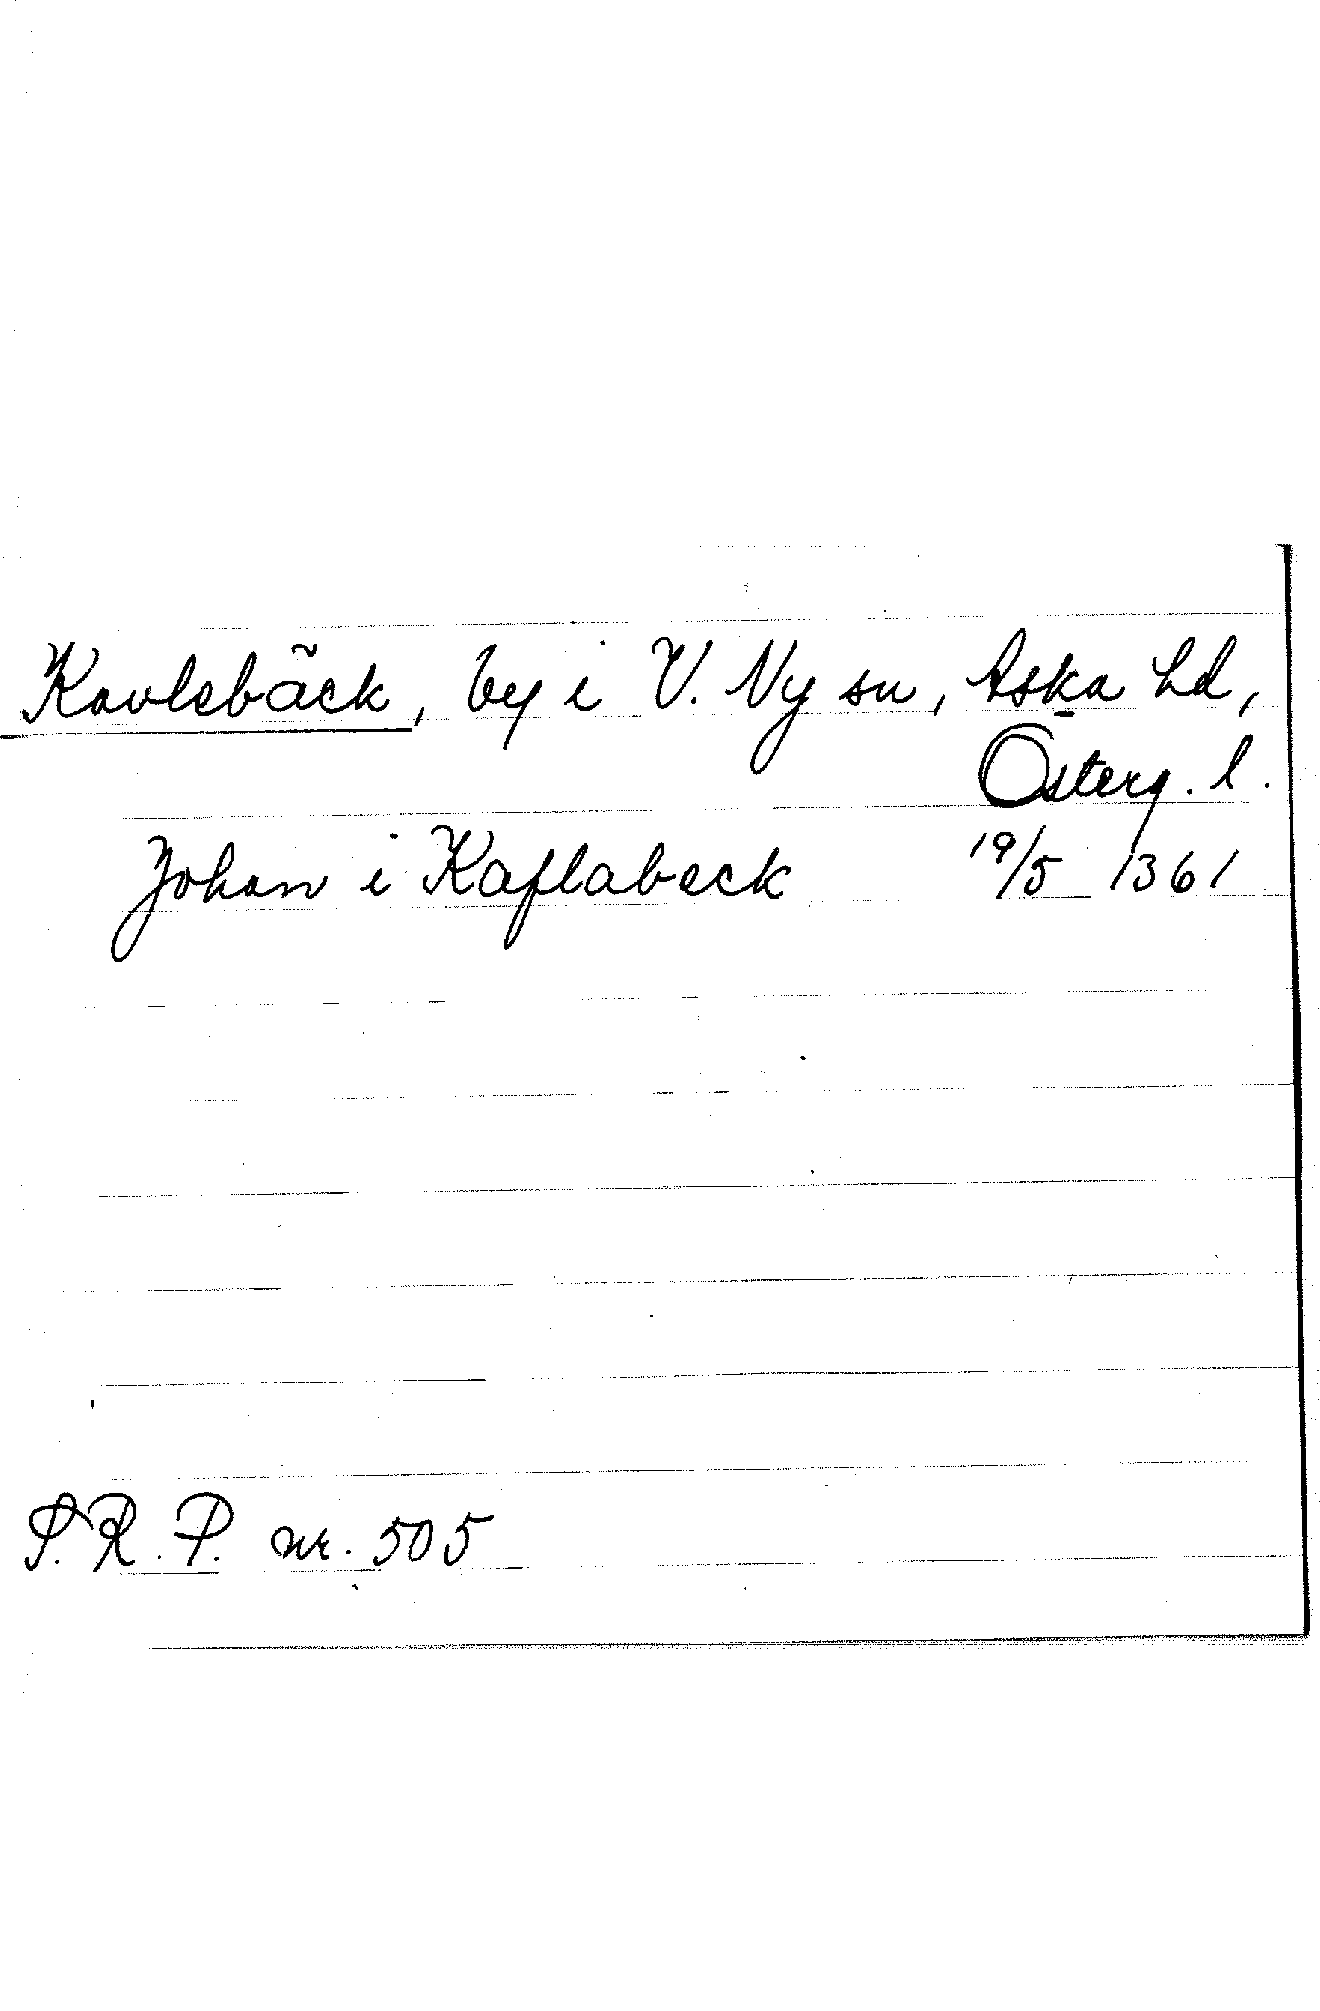 Kavlebäck, by i V. Ny sn, Aska hd,
Österg. l.
Johan i Kaflabeck 19/5 1361
S.R.P. nr. 505